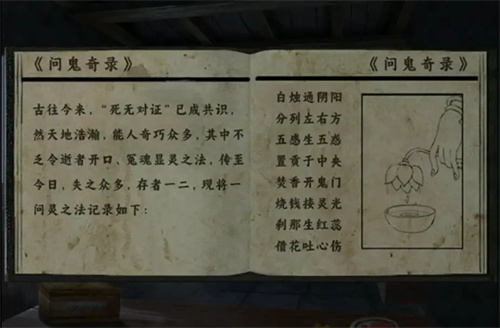 《问鬼奇录》
古往今来，“死无对证”已成共识，
然天地浩瀚，能人奇巧众多，其中不
乏令逝者开口，冤魂显灵之法，传至
今日，失之众多，存者一二，现将一
问灵之法记录如下：
《问鬼奇录》
白烛通阴阳
分列左右方
五感生五惑
置贡于中央
焚香开鬼门
烧钱接灵光
刹那生红蕊
借花吐心伤